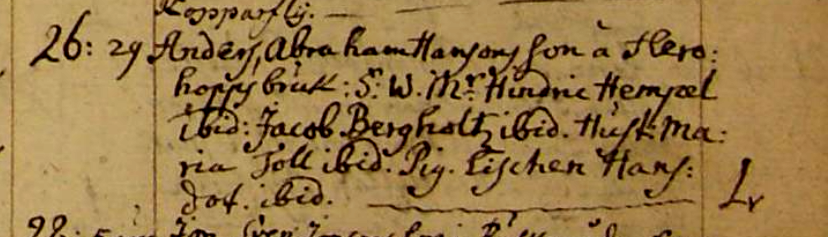 Kopparfly.
26: 29 Anders, Abraham Hansons son a Hero:
hopps bruk: S. W. Mr. Hindric Hempel
ibid: Jacob Bergholtz ibid. Hust. Ma:
ria Toll ibid. Pig. Lischen Hans:
dot. ibid. Lr